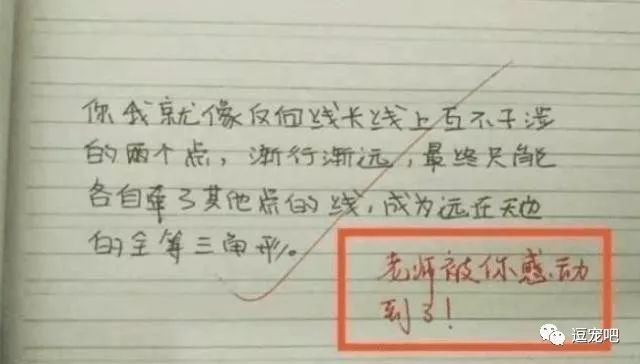 你我就像反向线长线上互不干涉
的两个点，渐行渐远，最终只能
各自牵了其他点的线，成为远在天边
的全等三角形。
老师被你感动
到了！
逗宠吧